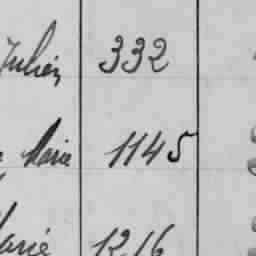 Julien 332
Marie 1145
Marie 1216